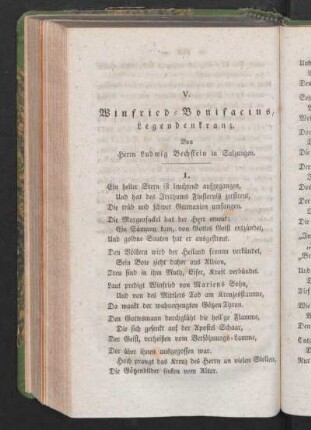 V.
Winfried-Bonifacius,
Legendenkranz.
Von
Herrn Ludwig Bechstein in Salzungen.
1.
Ein heller Stern ist leuchtend aufgegangen,
Und hat des Irrthums Finsterniß zerstreut,
Die trüb und schwer Germanien umfangen.
Die Morgenfackel hat der Herr erneut;
Ein Sämann kam, von Gottes Geist entzündet,
Und goldne Saaten hat er ausgestreut.
Den Völkern wird der Heiland fromm verkündet,
Sein Bote zieht daher aus Albion,
Treu sind in ihm Muth, Eifer, Kraft verbündet.
Laut predigt Winfried von Mariens Sohn,
Und von des Mittlers Tod am Kreuzesstamme,
Da wankt der wahnerzeugten Götzen Thron.
Den Gottesmann durchglüht die heil'ge Flamme,
Die sich gesenkt auf der Apostel Schaar,
Der Geist, verheißen vom Versöhnungs-Lamme,
Der über ihnen ausgegossen war.
Hoch prangt das Kreuz des Herrn an vielen Stellen,
Die Götzenbilder sinken vom Altar.